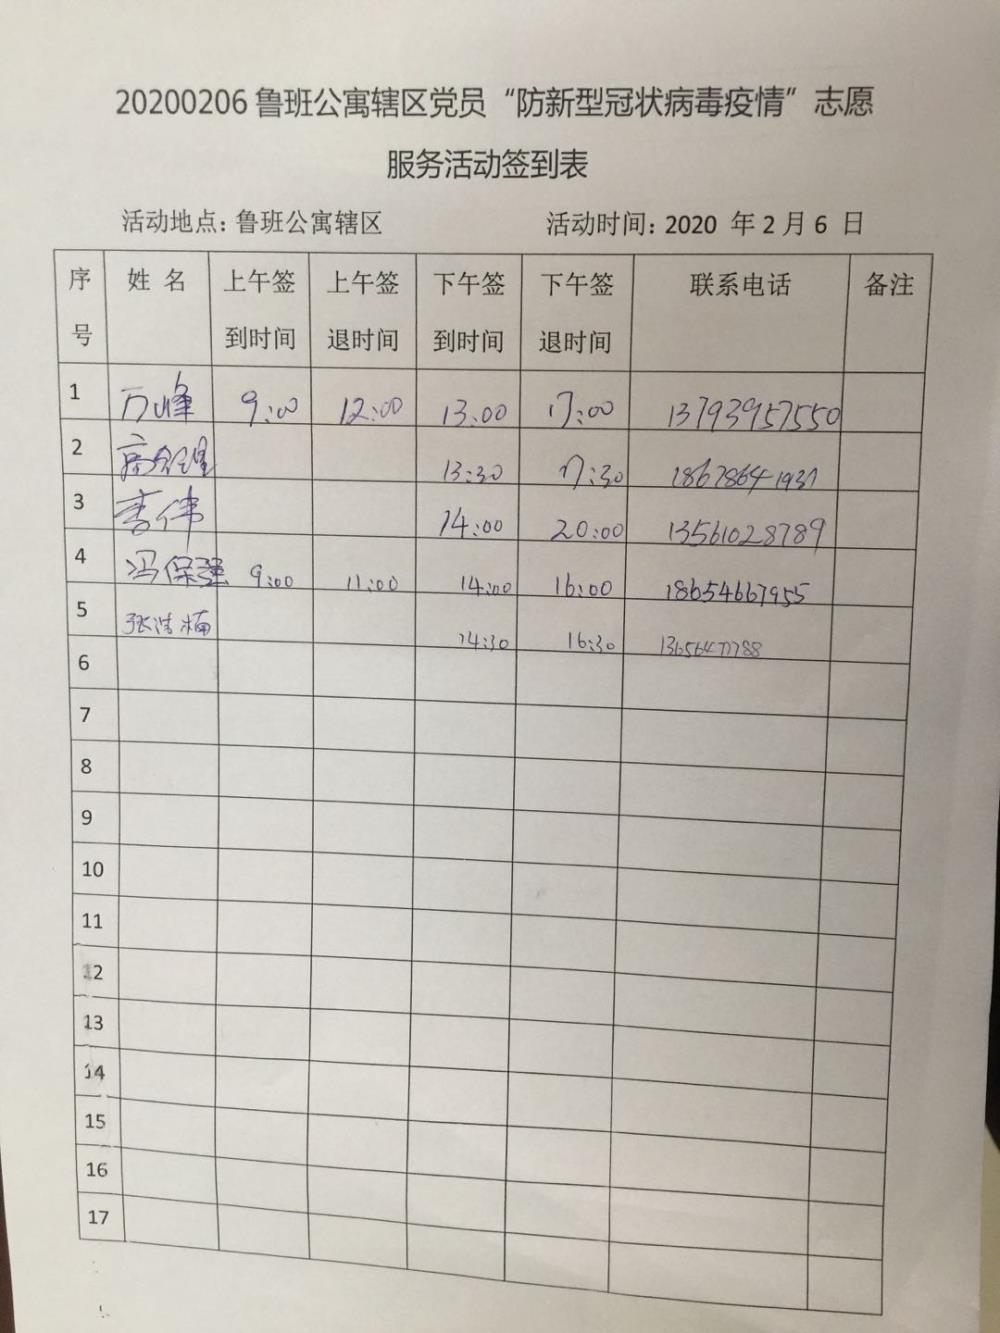 20200206 鲁班公寓辖区党员“防新型冠状病毒疫情”志愿
服务活动签到表
活动地点: 鲁班公寓辖区 活动时间: 2020 年 2 月 6 日
序号 姓 名 上午签到时间 上午签退时间 下午签到时间 下午签退时间 联系电话 备注
1 万峰 9:00 12:00 13:00 17:00 13793957550
2 13:30 17:30 18678641937
3 李伟 14:00 20:00 13561028789
4 冯保强 9:00 11:00 14:00 16:00 18654667955
5 张浩楠 14:30 16:30
6
7
8
9
10
11
12
13
14
15
16
17